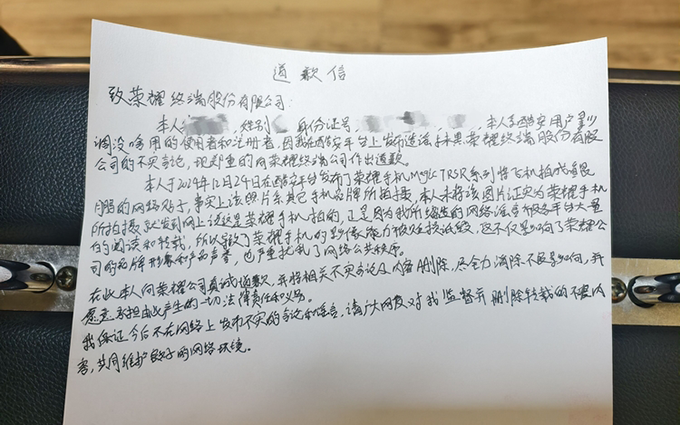 道歉信
致荣耀终端股份有限公司:
本人 ,性别 ,身份证号 , , 本人系酷安用户
调没啥用的使用者和注册者,因我在酷安平台上发布造谣抹黑荣耀终端股份有限
公司的不实言论,现郑重的向荣耀终端公司作出道歉。
本人于2024年12月24日在酷安平台发布了荣耀手机Magic7RSR系列博飞机拍成
的网络贴子,事实上该照片系其它手机品牌所拍摄,本人未将该图片证实为荣耀手机
所拍摄就发到网上说这是荣耀手机拍的,正是因为我所编造的网络谣言被各平台大量
的阅读和转载,所以导致了荣耀手机的影像能力被贬损诋毁,这不仅影响了荣耀公
司的品牌形象和产品声誉,也严重扰乱了网络公共秩序。
在此本人向荣耀公司真诚道歉,并将相关不实言论及内容删除,尽全力消除不良影响,并
愿意承担由此产生的一切法律责任和义务。
我保证今后不在网络上发布不实的言论和谣言,请广大网友对我监督并删除转载的不良内
容,共同维护良好的网络环境。